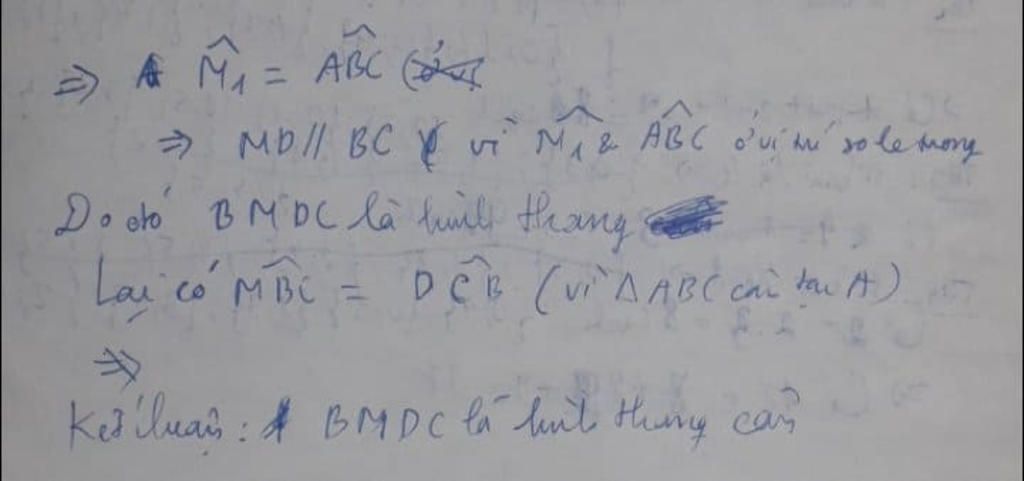 ⇒ M̂₁ = ABĈ
⇒ MD // BC vì M̂₁ & ABĈ ở vị trí so le trong
Do đó BMDC là hình thang
Lại có MBĈ = DCB̂ (vì Δ ABC cân tại A)
⇒
Kết luận: BMDC là hình thang cân